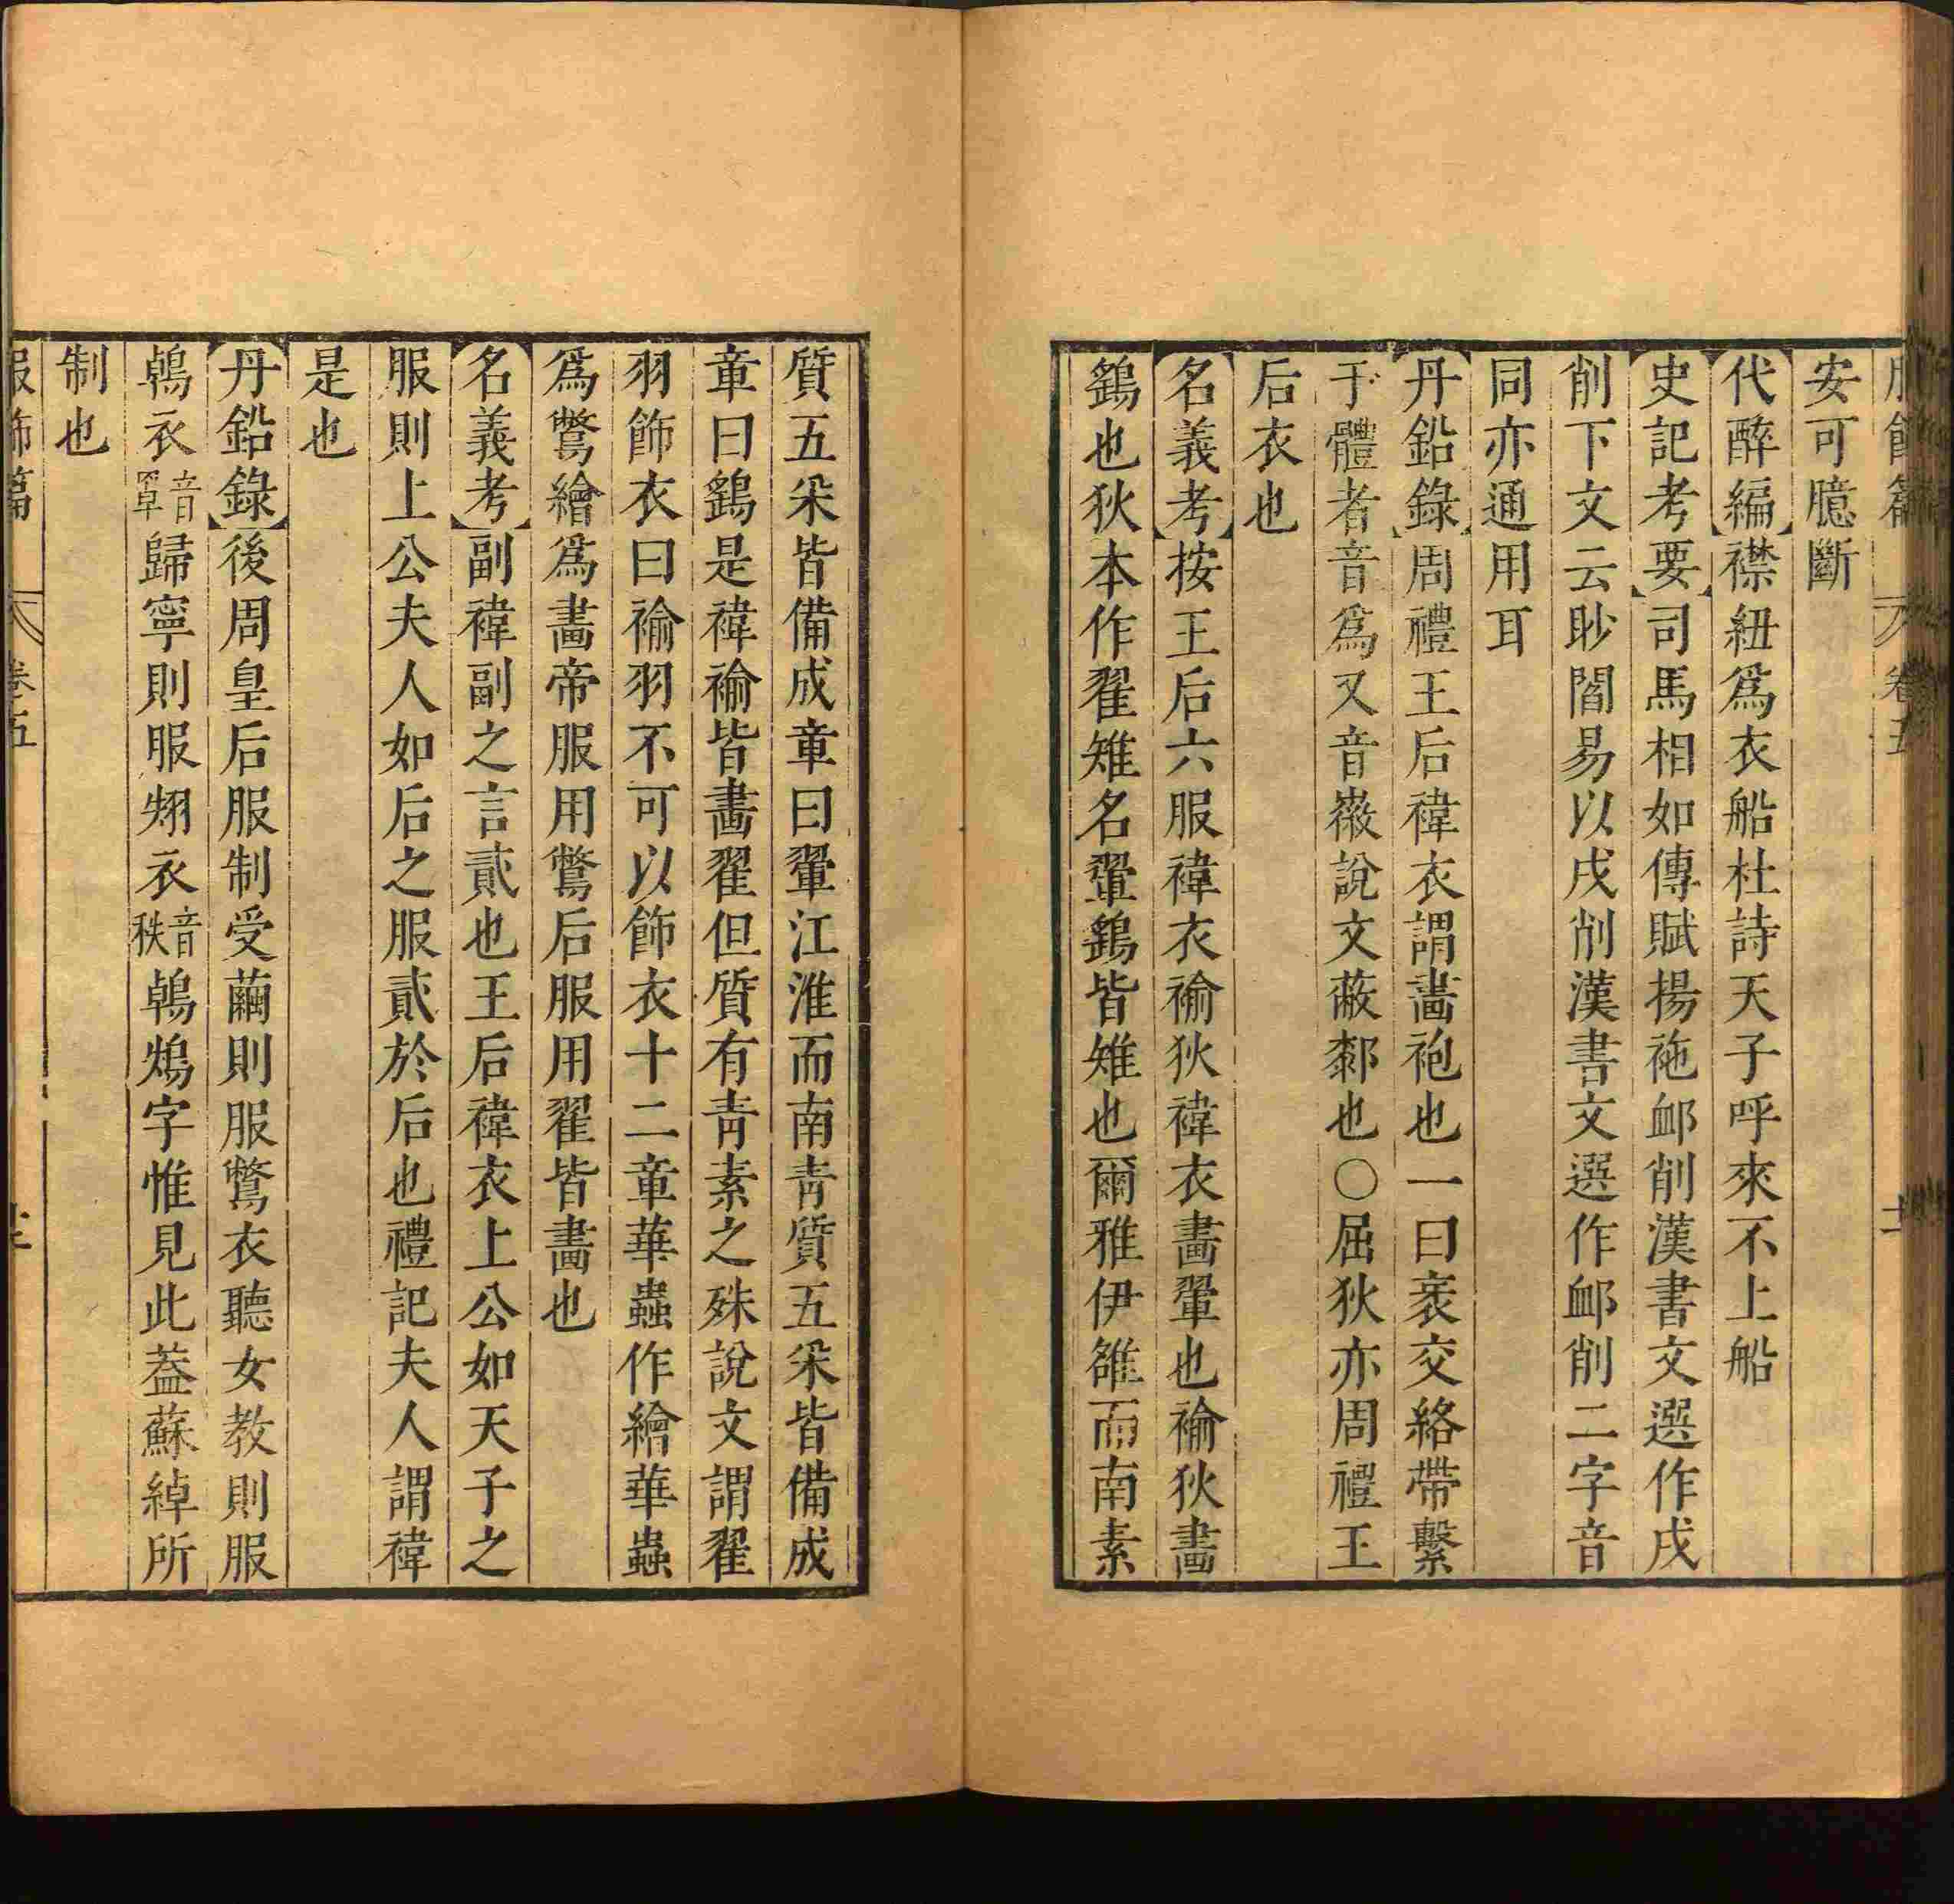 服飾篇 卷五 十
安可臆斷
【代醉編】襟紐爲衣船杜詩天子呼來不上船
【史記考要】司馬相如傳賦揚袘卹削漢書文選作戌
削下文云眇閻易以戌削漢書文選作卹削二字音
同亦通用耳
【丹鉛錄】周禮王后褘衣謂畵袍也一曰袤交絡帶繫
于體者音爲又音嶶說文蔽䣛也○屈狄亦周禮王
后衣也
【名義考】按王后六服褘衣褕狄褘衣畵翬也褕狄畵
鷂也狄本作翟雉名翬鷂皆雉也爾雅伊雒而南素
質五采皆備成章曰翬江淮而南靑質五采皆備成
章曰鷂是褘褕皆畵翟但質有靑素之殊說文謂翟
羽飾衣曰褕羽不可以飾衣十二章華蟲作繪華蟲
爲鷩繪爲畵帝服用鷩后服用翟皆畵也
【名義考】副褘副之言貳也王后褘衣上公如天子之
服則上公夫人如后之服貳於后也禮記夫人謂褘
是也
【丹鉛錄】後周皇后服制受繭則服鷩衣聽女教則服
鵫衣音罩歸寧則服翐衣音秩鵫鴩字惟見此葢蘇綽所
制也
服飾篇 卷五